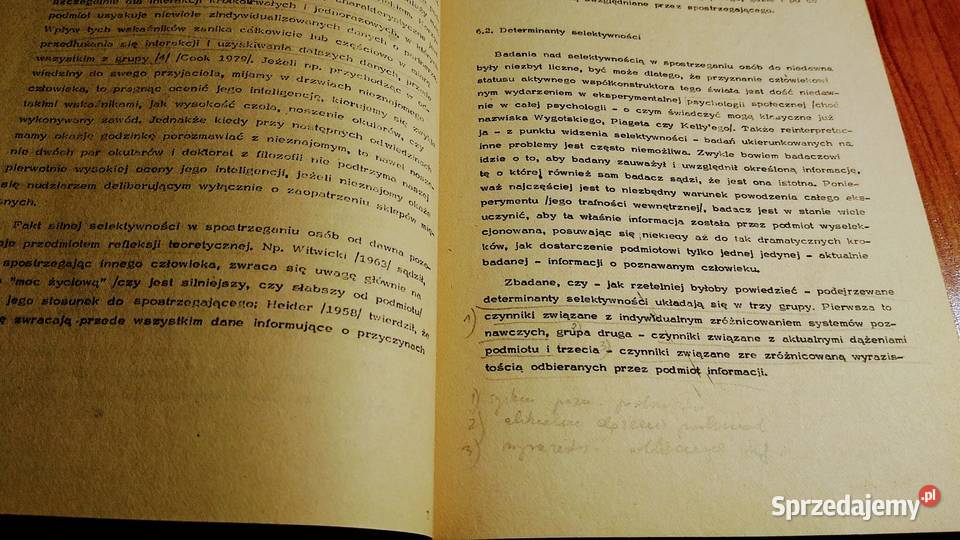 szczególnie dla interakcji krótkotrwałych i jednorazowych, w
podmiot uzyskuje niewiele zindywidualizowanych danych o
Wpływ tych wskaźników zanika całkowicie lub częściowo w miarę
przedłużania się interakcji i uzyskiwania dalszych danych, przede
wszystkim z grupy /4/ /Cook 1979/. Jeżeli np. przychodząc w od-
wiedziny do swego przyjaciela, mijamy w drzwiach nieznajomego
człowieka, to pragnąc ocenić jego inteligencję, kierujemy się
takimi wskaźnikami, jak wysokość czoła, noszenie okularów, czy
wykonywany zawód. Jednakże kiedy przy następnych odwiedzinach
mamy okazję godzinkę porozmawiać z nieznajomym, to nawet nosze-
nie dwóch par okularów i doktorat z filozofii nie podtrzyma naszej
pierwotnie wysokiej oceny jego inteligencji, jeżeli nieznajomy okaże
się nudziarzem deliberującym wyłącznie o zaopatrzeniu sklepów
snych.
Fakt silnej selektywności w spostrzeganiu osób od dawna pozo-
przedmiotem refleksji teoretycznej. Np. Witwicki /1963/ sądził,
spostrzegając innego człowieka, zwraca się uwagę głównie na
"moc życiową" /czy jest silniejszy, czy słabszy od podmiotu/
jego stosunek do spostrzegającego; Heider /1958/ twierdził, że
zwracają przede wszystkim dane informujące o przyczynach
uwzględniane przez spostrzegającego.
6.2. Determinanty selektywności
Badania nad selektywnością w spostrzeganiu osób do niedawna
były niezbyt liczne, być może dlatego, że przyznanie człowiekowi
statusu aktywnego współkonstruktora tego świata jest dość niedaw-
nym wydarzeniem w eksperymentalnej psychologii społecznej /choć
nie w całej psychologii - o czym świadczyć mogą klasyczne już
nazwiska Wygotskiego, Piageta czy Kelly'ego/. Także reinterpretac-
ja - z punktu widzenia selektywności - badań ukierunkowanych na
inne problemy jest często niemożliwa. Zwykle bowiem badaczowi
idzie o to, aby badany zauważył i uwzględnił określoną informację,
tę o której również sam badacz sądzi, że jest ona istotna. Ponie-
waż najczęściej jest to niezbędny warunek powodzenia całego eks-
perymentu /jego trafności wewnętrznej/, badacz jest w stanie wiele
uczynić, aby ta właśnie informacja została przez podmiot wyselek-
cjonowana, posuwając się niekiedy aż do tak dramatycznych kro-
ków, jak dostarczenie podmiotowi tylko jednej jedynej - aktualnie
badanej - informacji o poznawanym człowieku.
Zbadane, czy - jak rzetelniej byłoby powiedzieć - podejrzewane
determinanty selektywności układają się w trzy grupy. Pierwsza to
1) czynniki związane z indywidualnym zróżnicowaniem systemów poz-
nawczych, grupa druga - czynniki związane z aktualnymi dążeniami
podmiotu i trzecia - czynniki związane zre zróżnicowaną wyrazis-
tością odbieranych przez podmiot informacji.
1)
2)
3)
Sprzedajemy.pl